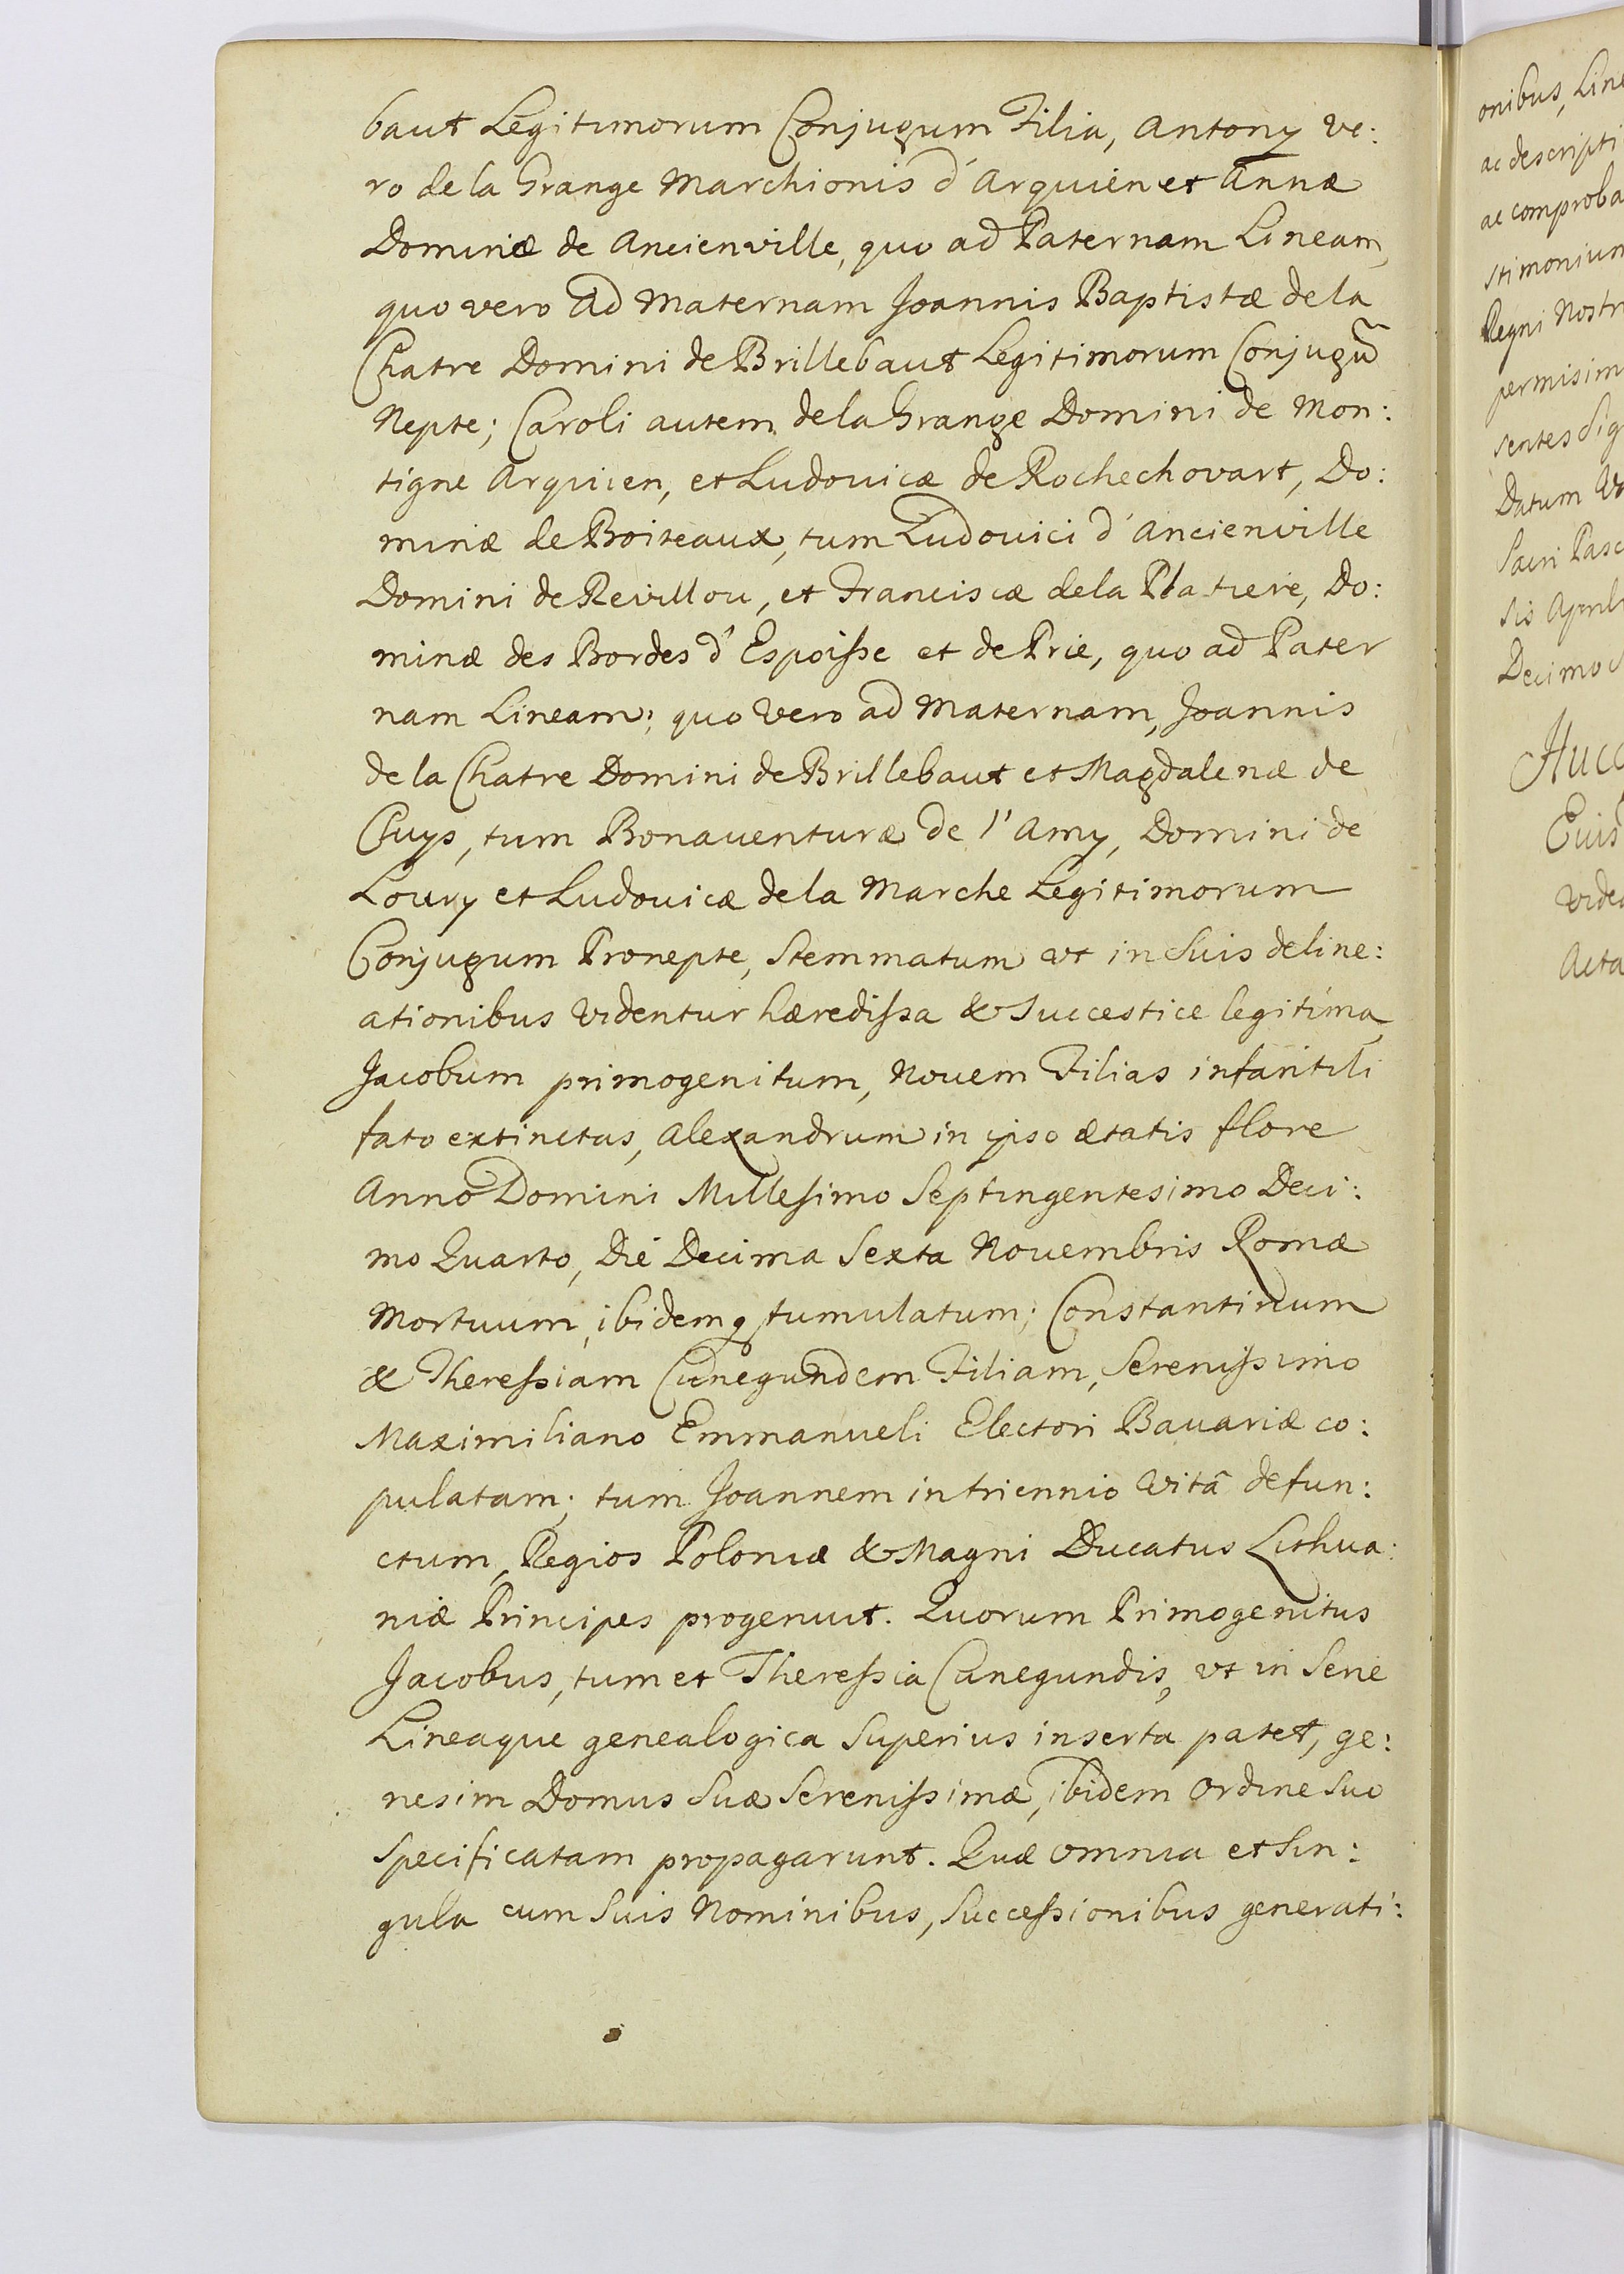 baut Legitimorum Conjugum Filia, Antony ve:
ro de la Grange Marchionis d'Arquien et Annæ
Dominæ de Ancienville, quo ad Paternam Lineam,
quo vero ad Maternam Joannis Baptistæ de la
Chatre Domini de Brillebaut Legitimorum Conjugũ
Nepte; Caroli autem de la Grange Domini de Mon:
tigne Arquien, et Ludovicæ de Rochechovart, Do:
minæ de Boiteaux, tum Ludovici d'Ancienville
Domini de Revillou, et Franciscæ de la Platiere, Do:
minæ des Bordes d'Espoisse et de Prie, quo ad Pater
nam Lineam; quo vero ad Maternam, Joannis
de la Chatre Domini de Brillebaut et Magdalenæ de
Chuys, tum Bonaventuræ de l'Amy, Domini de
Loury et Ludovicæ de la Marche Legitimorum
Conjugum Pronepte, Stemmatum ut in Suis deline:
ationibus videntur hæredissa & Successtice legitima,
Jacobum primogenitum, Novem Filias infantili
fato extinctas, Alexandrum in ipso ætatis flore
Anno Domini Millesimo Septingentesimo Deci:
mo Quarto, Die Decima Sexta Novembris Romæ
Mortuum, ibidemq tumulatum; Constantinum
& Theressiam Cunegundem Filiam, Serenissimo
Maximiliano Emmanueli Electori Bavariæ co:
pulatam; tum Joannem in triennio vitâ defun:
ctum, Regios Poloniæ & Magni Ducatus Lithua:
niæ Principes progenuit. Quorum Primogenitus
Jacobus, tum et Theressia Cunegundis, ut in Serie
Lineaque genealogica Superius inserta patet, ge:
nesim Domus Suæ Serenissimæ, ibidem Ordine Suo
Specificatam propagarunt. Quæ omnia et Sin:
gula cum Suis Nominibus, Successionibus generati:
onibus,
ac descripti
ac comproba
stimonium
Regni Nostri
permisim
sentes Sig
Datum
Sacri Pasc
sis April
Decimo
Acta